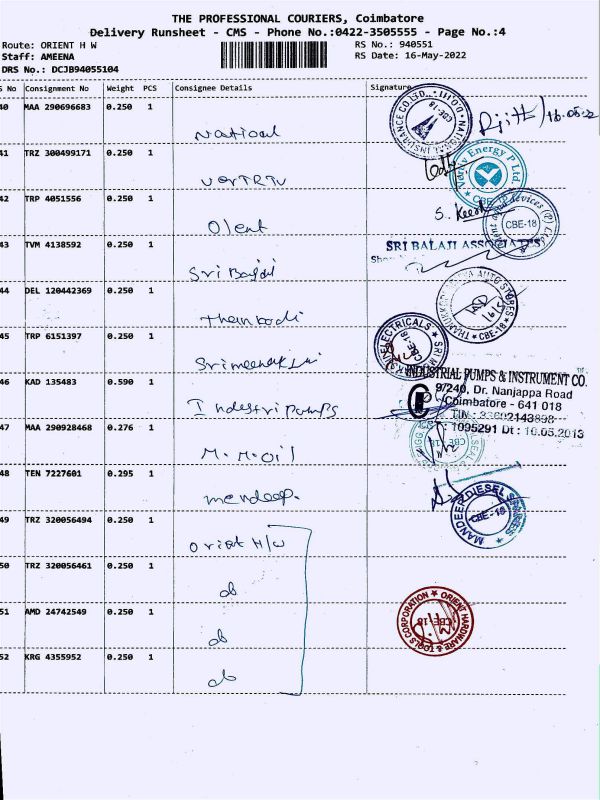 THE PROFESSIONAL COURIERS, Coimbatore
Delivery Runsheet - CMS - Phone No.:0422-3505555 - Page No.:4
Route: ORIENT H W
RS No.: 940551
Staff: AMEENA
RS Date: 16-May-2022
DRS No.: DCJB94055104
S No Consignment No Weight PCS Consignee Details Signature
40 MAA 290696683 0.250 1 National
NATIONAL INSURANCE CO.LTD.
16.05.22
41 TRZ 300499171 0.250 1
Energy P Ltd
CBE-18
42 TRP 4051556 0.250 1 Olent
S.
Devices (P) Ltd
CBE-18
43 TVM 4138592 0.250 1 Sri Balaji
SRI BALAJI ASSOCIATES
44 DEL 120442369 0.250 1
AUTO STORES
CBE-18
45 TRP 6151397 0.250 1 Srimeenakshi
ELECTRICALS
CBE-18
46 KAD 135483 0.590 1 Indestri pumps
INDUSTRIAL PUMPS & INSTRUMENT CO.
9/240, Dr. Nanjappa Road
Coimbatore - 641 018
TIN : 33602143898
1095291 Dt : 10.05.2013
47 MAA 290928468 0.276 1 M.M.Oil
SEAL
CBE-18
48 TEN 7227601 0.295 1 mendeep.
MANDEEP DIESEL
CBE-18
49 TRZ 320056494 0.250 1 Orient H/W
50 TRZ 320056461 0.250 1 do
51 AMD 24742549 0.250 1 do
ORIENT HARDWARE & TOOLS CORPORATION
CBE-18
52 KRG 4355952 0.250 1 do